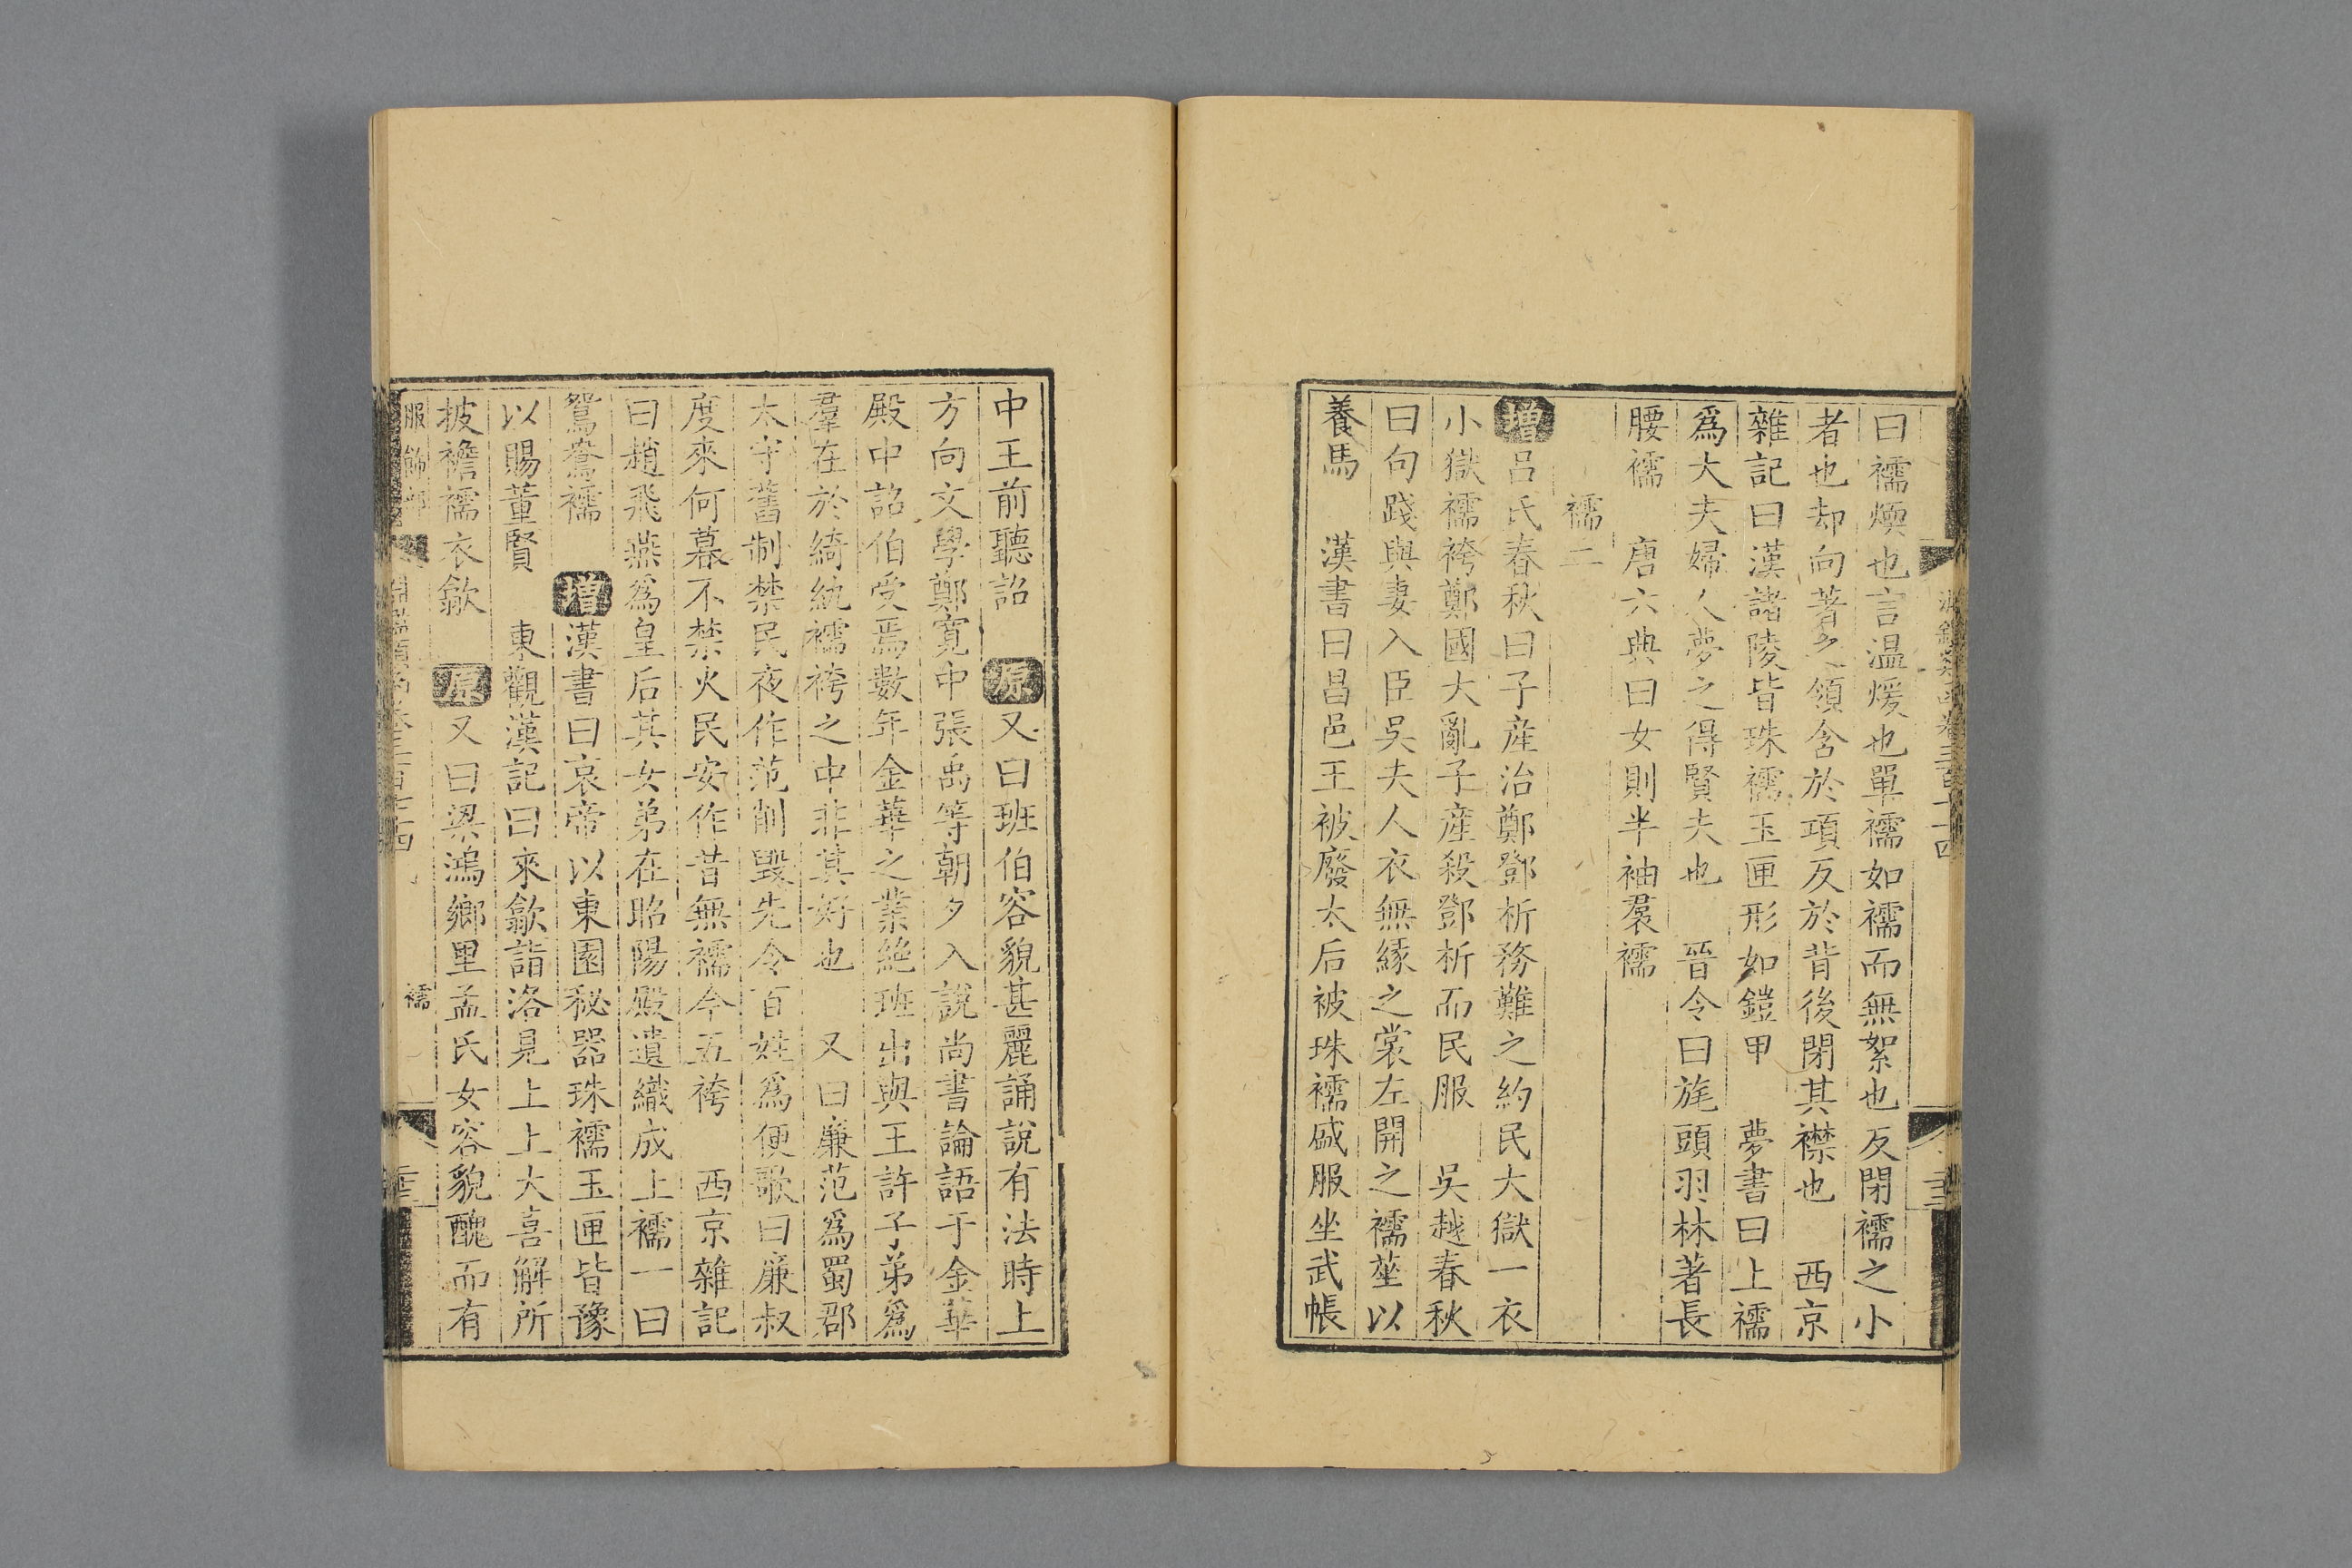 曰襦煗也言温煖也單襦如襦而無絮也反閉襦之小
者也却向著之領含於項反於背後閉其襟也　西京
雜記曰漢諸陵皆珠襦玉匣形如鎧甲　夢書曰上襦
爲大夫婦人夢之得賢夫也　晉令曰旄頭羽林著長
腰襦　唐六典曰女則半袖裠襦
襦二
增呂氏春秋曰子産治鄭鄧析務難之約民大獄一衣
小獄襦袴鄭國大亂子産殺鄧析而民服　吳越春秋
曰句踐與妻入臣吳夫人衣無緣之裳左開之襦莝以
養馬　漢書曰昌邑王被廢太后被珠襦盛服坐武帳
中王前聽詔　原又曰班伯容貌甚麗誦說有法時上
方向文學鄭寛中張禹等朝夕入說尚書論語于金華
殿中詔伯受焉數年金華之業絶班出與王許子弟爲
羣在於綺紈襦袴之中非其好也　又曰廉范爲蜀郡
太守舊制禁民夜作范削毀先令百姓爲便歌曰廉叔
度來何暮不禁火民安作昔無襦今五袴　西京雜記
曰趙飛燕爲皇后其女弟在昭陽殿遺織成上襦一曰
鴛鴦襦　增漢書曰哀帝以東園秘器珠襦玉匣皆豫
以賜董賢　東觀漢記曰來歙詣洛見上上大喜解所
披襜襦衣歙　原又曰梁鴻鄉里孟氏女容貌醜而有
服飾部　襦